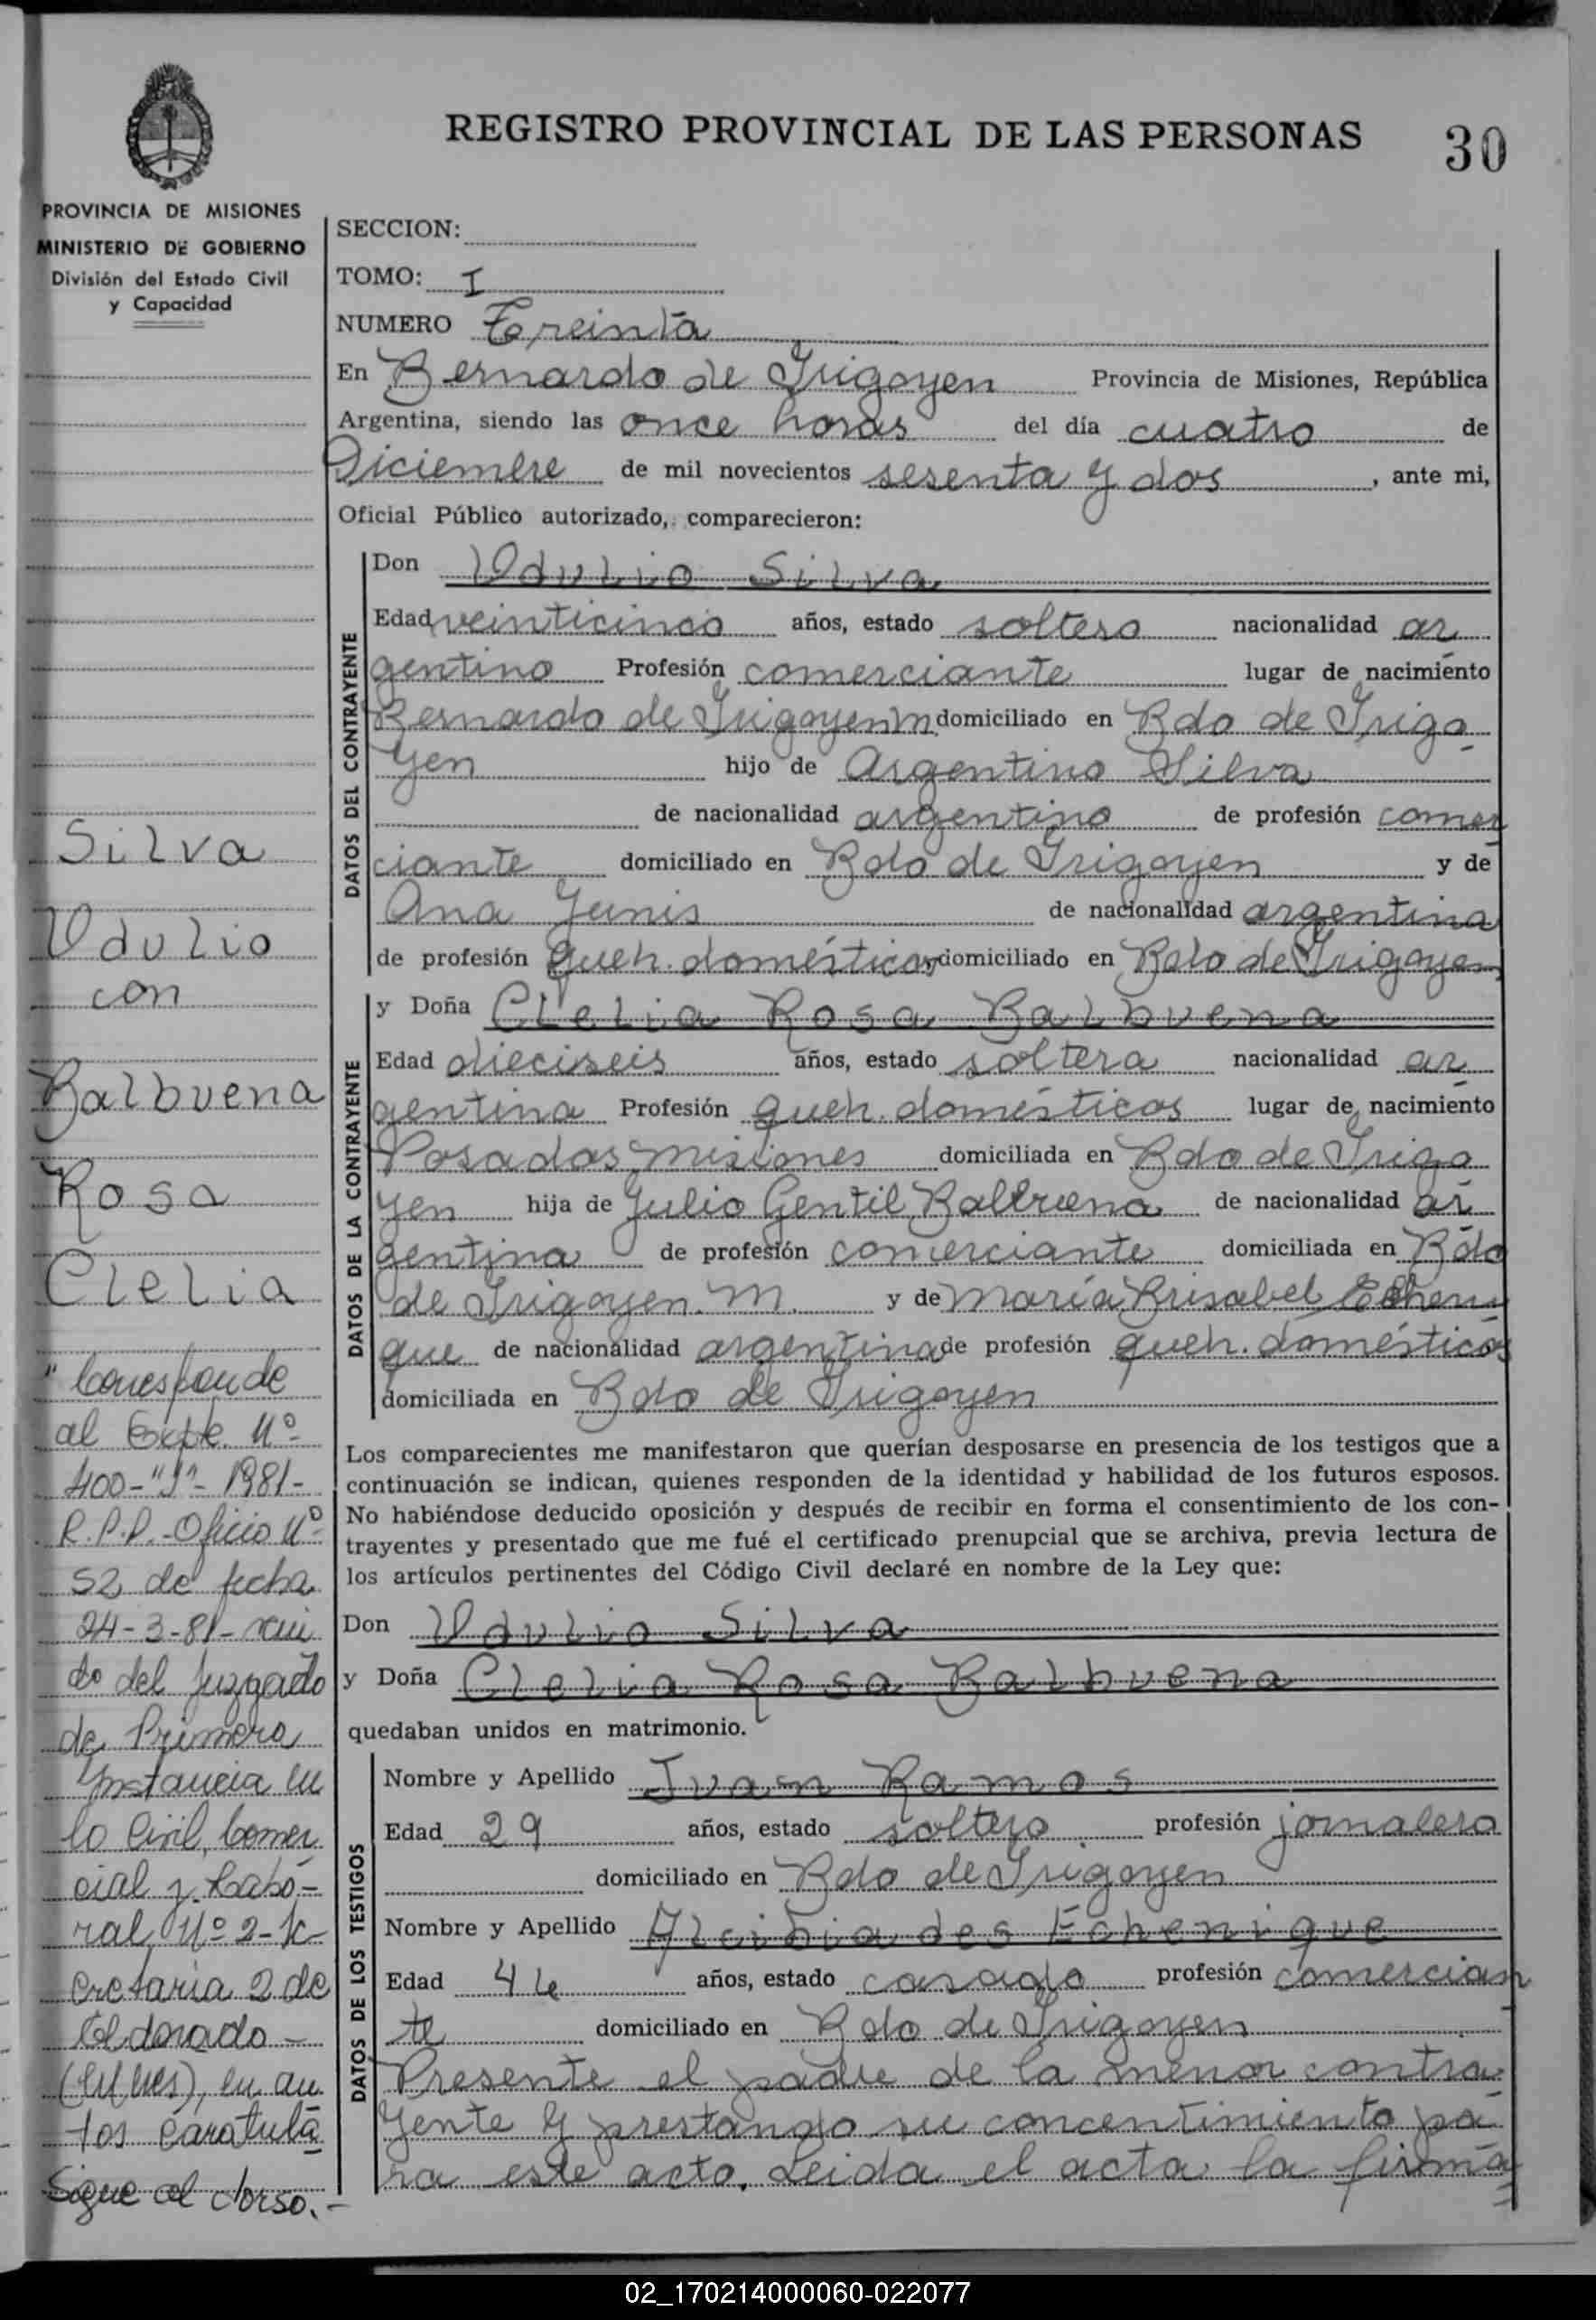 REGISTRO PROVINCIAL DE LAS PERSONAS
30
PROVINCIA DE MISIONES
MINISTERIO DE GOBIERNO
División del Estado Civil
y Capacidad
SECCION:
TOMO: I
NUMERO Treinta
En Bernardo de Irigoyen Provincia de Misiones, República
Argentina, siendo las once horas del día cuatro de
Diciembre de mil novecientos sesenta y dos, ante mi,
Oficial Público autorizado, comparecieron:
DATOS DEL CONTRAYENTE
Don Udulio Silva
Edad veinticinco años, estado soltero nacionalidad ar
gentino Profesión comerciante lugar de nacimiento
Bernardo de Irigoyen M. domiciliado en Bdo de Irigo
yen hijo de Argentino Silva
de nacionalidad argentino de profesión comer
ciante domiciliado en Bdo de Irigoyen y de
Ana Junis de nacionalidad argentina
de profesión queh. domésticos domiciliado en Bdo de Irigoyen
DATOS DE LA CONTRAYENTE
y Doña Clelia Rosa Balbuena
Edad dieciseis años, estado soltera nacionalidad ar
gentina Profesión queh. domésticos lugar de nacimiento
Posadas Misiones domiciliada en Bdo de Irigo
yen hija de Julio Gentil Balbuena de nacionalidad ar
gentina de profesión comerciante domiciliada en Bdo
de Irigoyen. M. y de María Brisabel Echeni
que de nacionalidad argentina de profesión queh. domésticos
domiciliada en Bdo de Irigoyen
Los comparecientes me manifestaron que querían desposarse en presencia de los testigos que a
continuación se indican, quienes responden de la identidad y habilidad de los futuros esposos.
No habiéndose deducido oposición y después de recibir en forma el consentimiento de los con-
trayentes y presentado que me fué el certificado prenupcial que se archiva, previa lectura de
los artículos pertinentes del Código Civil declaré en nombre de la Ley que:
Don Udulio Silva
y Doña Clelia Rosa Balbuena
quedaban unidos en matrimonio.
DATOS DE LOS TESTIGOS
Nombre y Apellido Ivan Ramos
Edad 29 años, estado soltero profesión jornalero
domiciliado en Bdo de Irigoyen
Nombre y Apellido Alcibiades Echenique
Edad 44 años, estado casado profesión comercian
te domiciliado en Bdo de Irigoyen
Presente el padre de la menor contra
yente y prestando su concentimiento pa
ra este acto. Leida el acta la firma
Silva
Udulio
con
Balbuena
Rosa
Clelia
"Corresponde
al Expte. Nº
400-"J"-1981-
R.P.P.-Oficio Nº
52 de fecha
24-3-81-
do del Juzgado
de Primera
Instancia en
lo Civil, Comer
cial y Labo-
ral Nº 2-Se
cretaria 2 de
Eldorado-
(Mnes), en au
tos caratula
Sigue al dorso.-
02_170214000060-022077